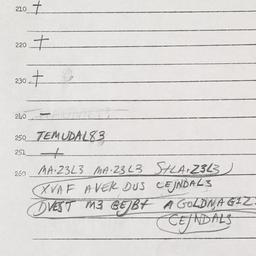 210 †
220 †
230 †
240 –
250 TEMUDAL83
251 +
260 MA.Z3L3 MA.Z3L3 StLA.Z3L3
XVAF AVEK DUS CEJNDAL3
DVEST M3 BEJB7 A GOLDNAG1Z
CEJNDAL3